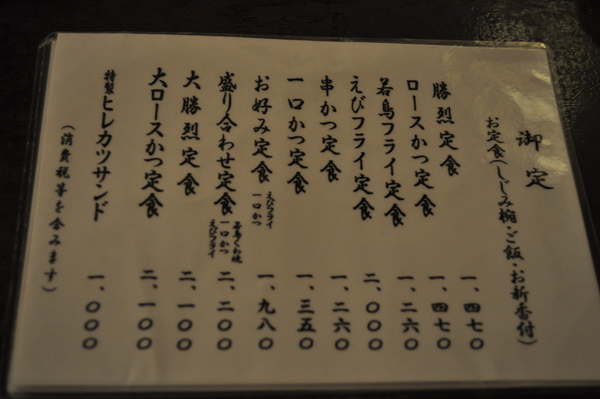 御定
お定食(しじみ椀・ご飯・お新香付)
勝烈定食 一、四七〇
ロースかつ定食 一、四七〇
若鳥フライ定食 一、二六〇
えびフライ定食 二、〇〇〇
串かつ定食 一、二六〇
一口かつ定食 一、三五〇
お好み定食 一、九八〇
えびフライ
一口かつ
盛り合わせ定食 二、二〇〇
若鳥くわ焼
一口かつ
えびフライ
大勝烈定食 二、一〇〇
大ロースかつ定食 二、一〇〇
特製ヒレカツサンド 一、〇〇〇
(消費税等を含みます)